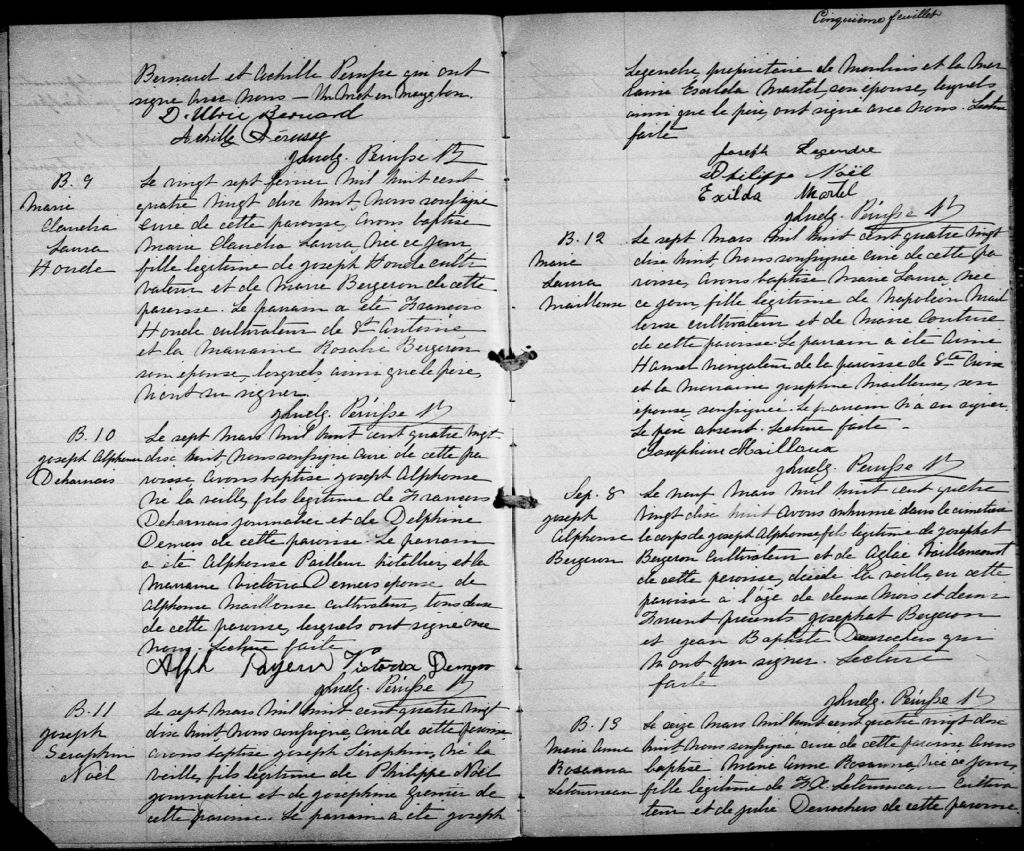 Bernard et Achille Pérusse qui ont
signé avec nous — Un mot en marge bon.
D. Ulric Bernard
Achille Pérusse
J. Ludg. Pérusse Ptr
B. 9
Marie
Claudia
Laura
Houde
Le vingt sept février mil huit cent
quatre vingt dix huit, nous soussigné
curé de cette paroisse, avons baptisé
Marie Claudia Laura, née ce jour,
fille légitime de Joseph Houde culti
vateur et de Marie Bergeron de cette
paroisse. Le parrain a été François
Houde cultivateur de St Antoine
et la Marraine Rosalie Bergeron
son épouse, lesquels ainsi que le père,
n'ont su signer.
J. Ludg. Pérusse Ptr
B. 10
Joseph Alphonse
Deharnais
Le sept Mars mil huit cent quatre vingt
dix huit, nous soussigné curé de cette pa
roisse avons baptisé Joseph Alphonse
né la veille, fils légitime de François
Deharnais journalier et de Delphine
Demers de cette paroisse. Le parrain
a été Alphonse Pailleur hôtellier, et la
Marraine Victoria Demers épouse de
Alphonse Mailloux cultivateur, tous deux
de cette paroisse, lesquels ont signé avec
nous. Lecture faite
Alph Payeur Victoria Demers
J. Ludg. Pérusse Ptr
B. 11
Joseph
Séraphin
Noël
Le sept Mars mil huit cent quatre vingt
dix huit nous soussigné, curé de cette paroisse
avons baptisé Joseph Séraphin, né la
veille, fils légitime de Philippe Noël
journalier et de Josephine Grenier de
cette paroisse. Le parrain a été Joseph
Cinquième feuillet
Legendre, propriétaire de Moulins et la Mar
raine Exilda Martel, son épouse, lesquels
ainsi que le père, ont signé avec nous. Lecture
faite
Joseph Legendre
Philippe Noël
Exilda Martel
J. Ludg. Pérusse Ptr
B. 12
Marie
Laura
Mailloux
Le sept Mars mil huit cent quatre vingt
dix huit, nous soussigné curé de cette pa
roisse, avons baptisé Marie Laura, née
ce jour, fille légitime de Napoléon Mail
loux cultivateur et de Marie Couture
de cette paroisse. Le parrain a été
Hamel navigateur de la paroisse de Ste Croix
et la Marraine Josephine Mailloux, son
épouse, soussignée. Le parrain n'a su signer.
Le père absent. Lecture faite.
Josephine Mailloux
J. Ludg. Pérusse Ptr
Sep. 8
Joseph
Alphonse
Bergeron
Le neuf Mars mil huit cent quatre
vingt dix huit avons inhumé dans le cimetière
le corps de Joseph Alphonse fils légitime de Josephat
Bergeron cultivateur et de Aglaé Vaillancourt
de cette paroisse, décédé la veille, en cette
paroisse à l'âge de deux Mois et demi
Furent présents Josephat Bergeron
et Jean Baptiste Desrochers qui
n'ont pu signer. Lecture
faite
J. Ludg. Pérusse Ptr
B. 13
Marie Anne
Rosanna
Letourneau
Le seize Mars mil huit cent quatre vingt dix
huit nous soussigné curé de cette paroisse avons
baptisé Marie Anne Rosanna, née ce jour,
fille légitime de F.X. Letourneau cultiva
teur et de Julie Desrochers de cette paroisse